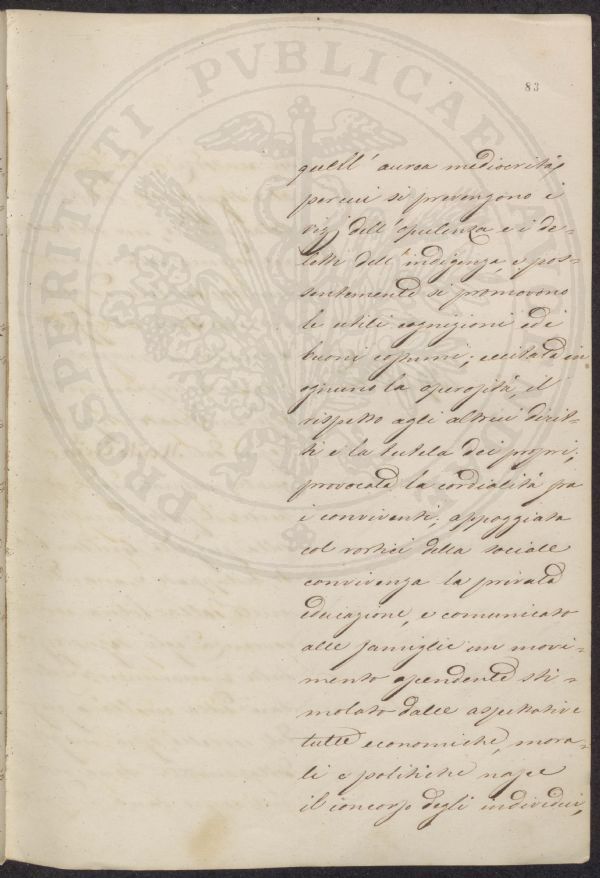 PROSPERITATI PVBLICAE AV
83
quell' aurea mediocrità,
percui si prevengono i
vizj dell' opulenza e i de-
litti dell' indigenza, e pos-
sentemente si promovono
le utili cognizioni ed i
buoni costumi; eccitata in
ognuno la operosità, il
rispetto agli altrui dirit-
ti e la tutela dei proprj;
provocata la cordialità fra
i conviventi; appoggiata
col vortici della sociale
convivenza la privata
educazione, e comunicato
alle famiglie un movi-
mento ascendente sti-
molato dalle aspettative
tutte economiche, mora-
li e politiche nasce
il concorso degli individui,